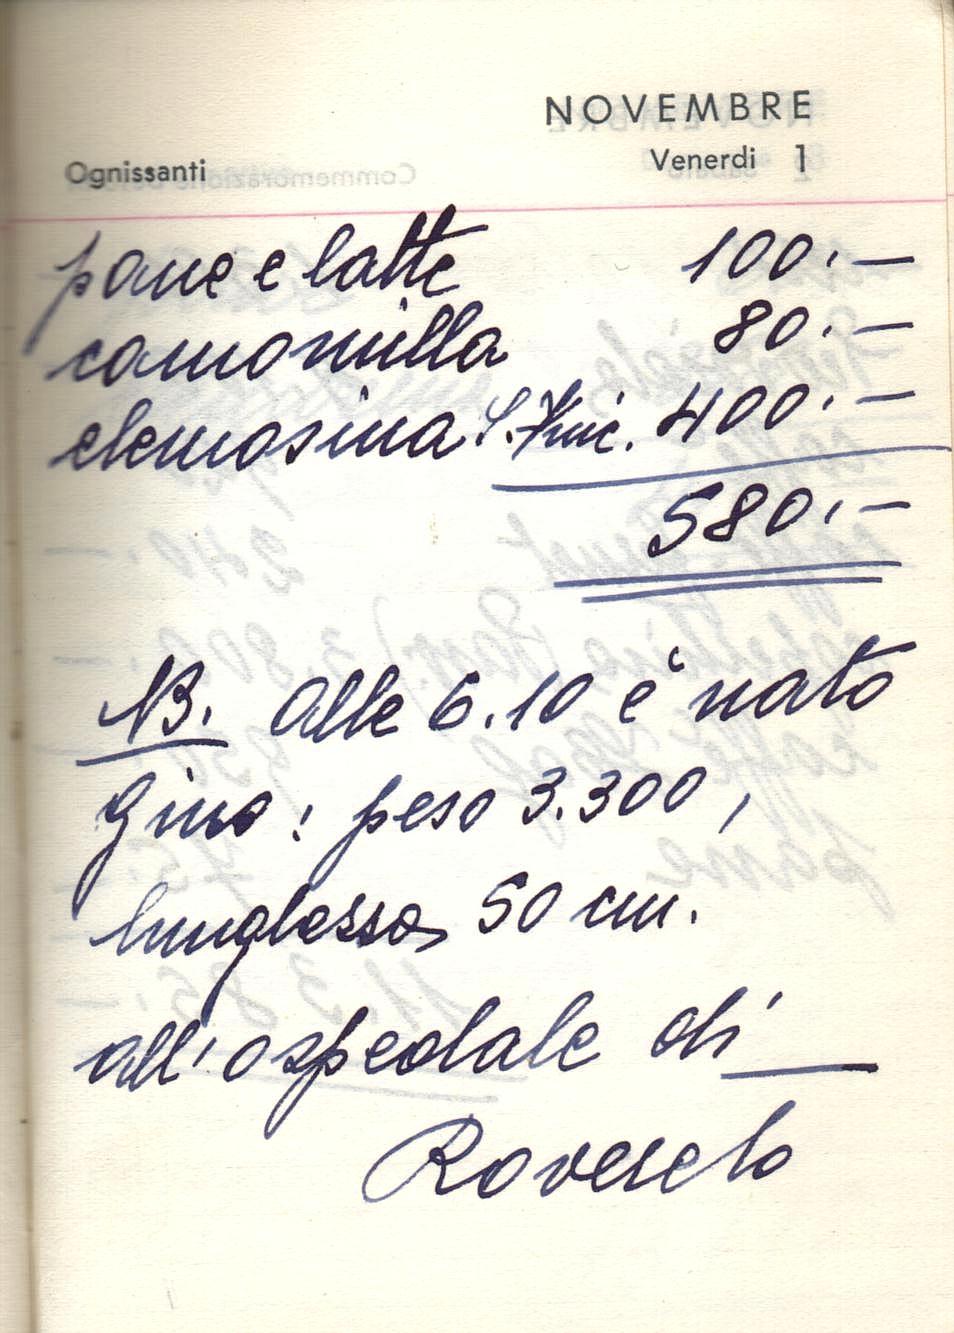 NOVEMBRE
Ognissanti Venerdi 1
pane e latte 100.—
camomilla 80.—
elemosina S. 400.—
580.—
NB. alle 6.10 è nato
Gino: peso 3.300,
lunghezza 50 cm.
all'ospedale di
Rovereto